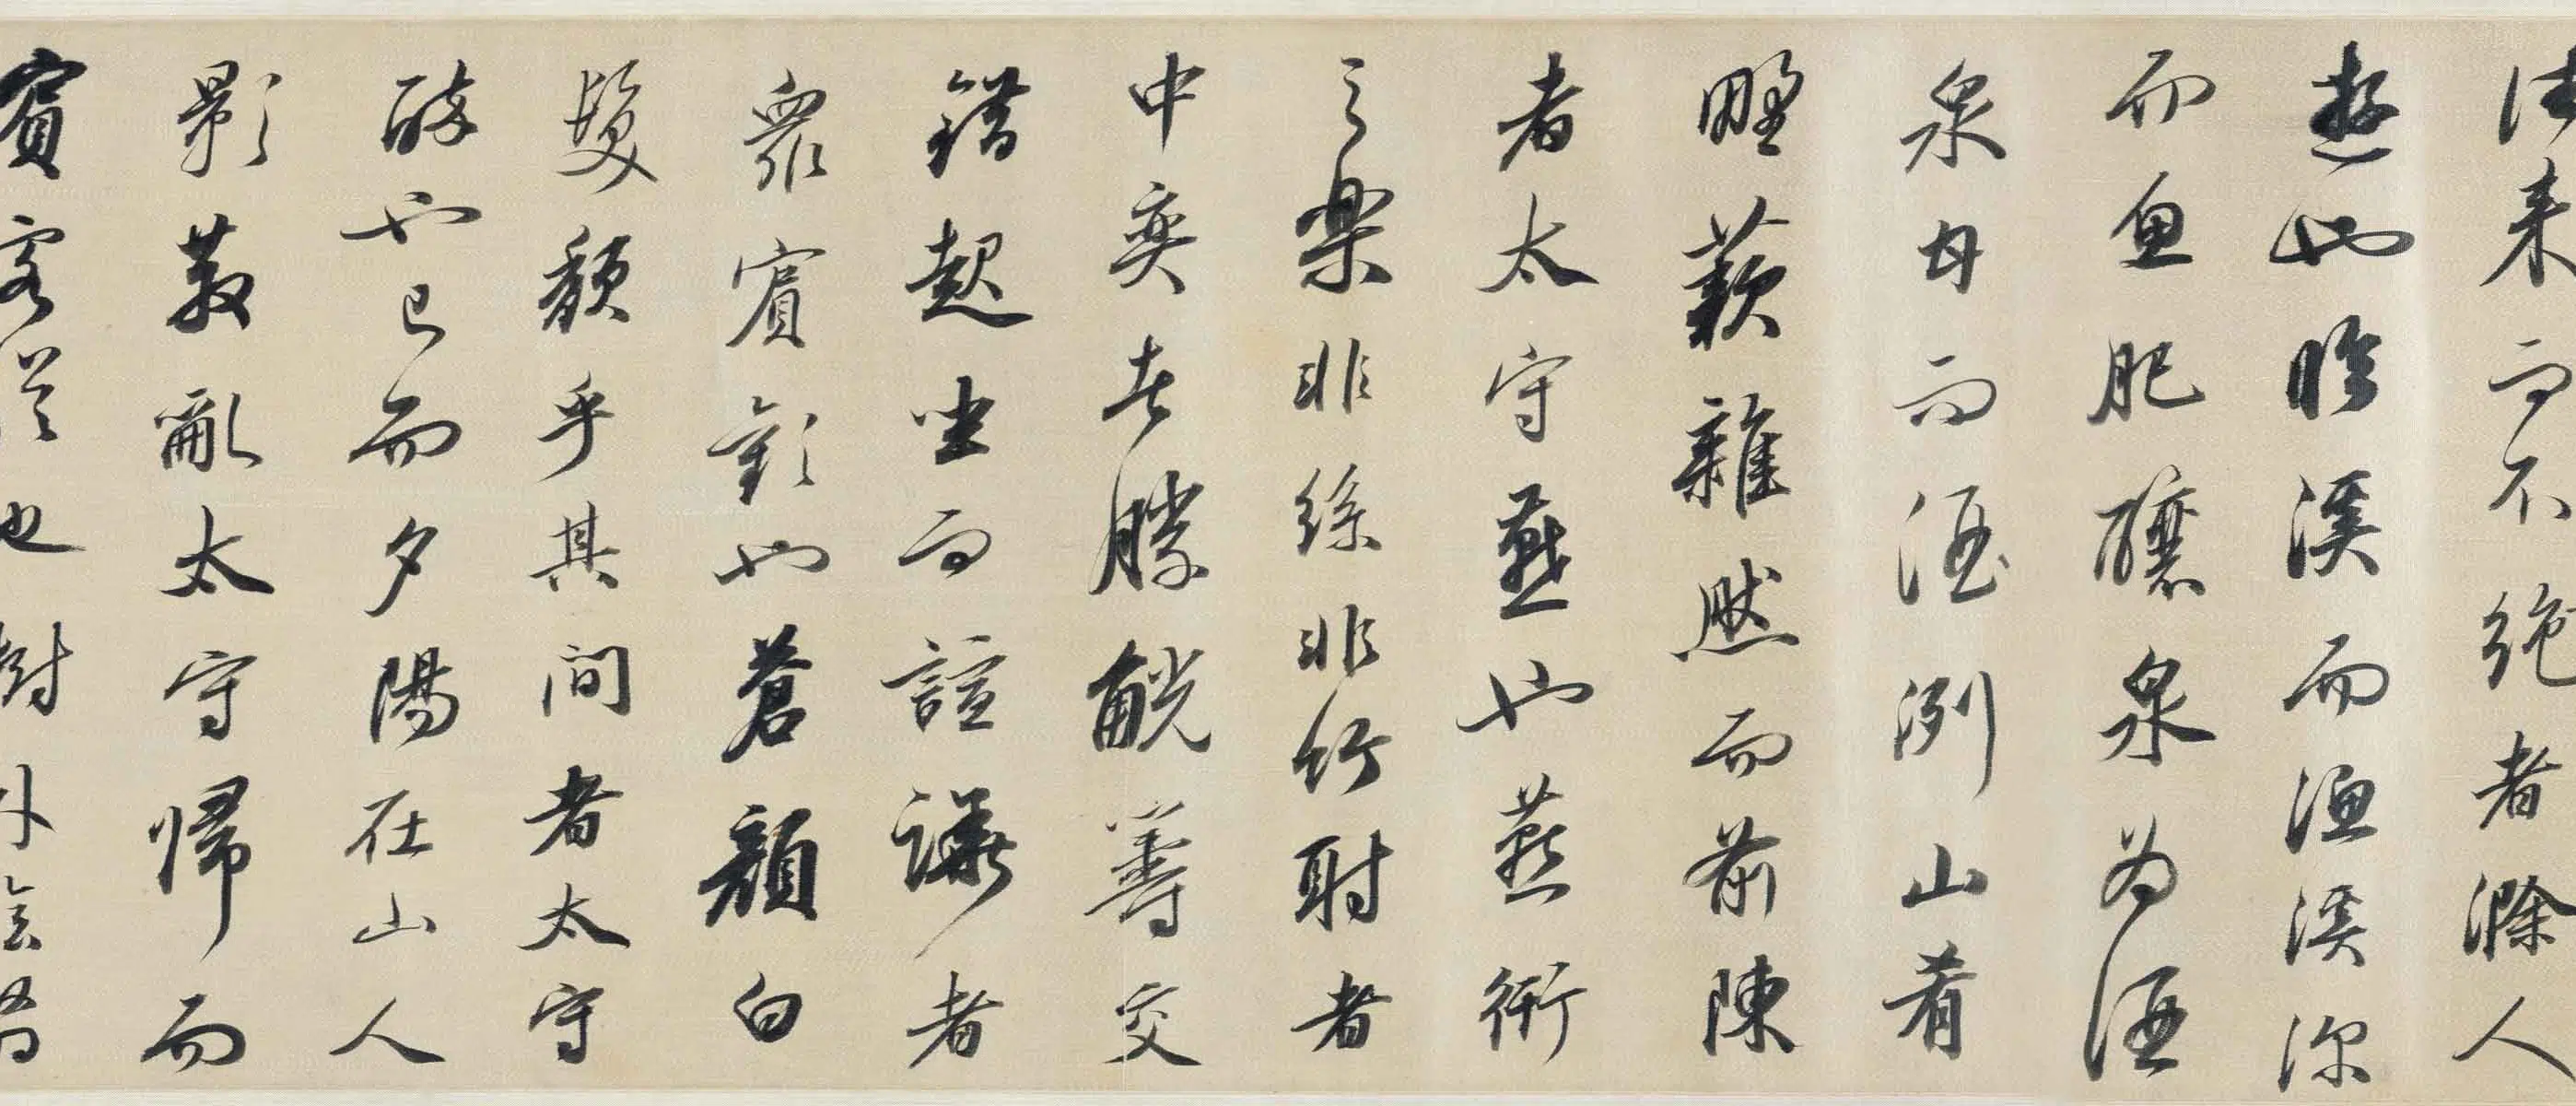 往来而不絶者滁人
遊也臨溪而漁溪深
而魚肥釀泉為酒
泉甘而酒洌山肴
野蔌雜然而前陳
者太守燕也燕衎
之樂非絲非竹射者
中奕者勝觥籌交
錯起坐而諠譁者
衆賓歡也蒼顔白
髮頹乎其間者太守
醉也已而夕陽在山人
影散亂太守歸而
賓客從也樹林陰翳